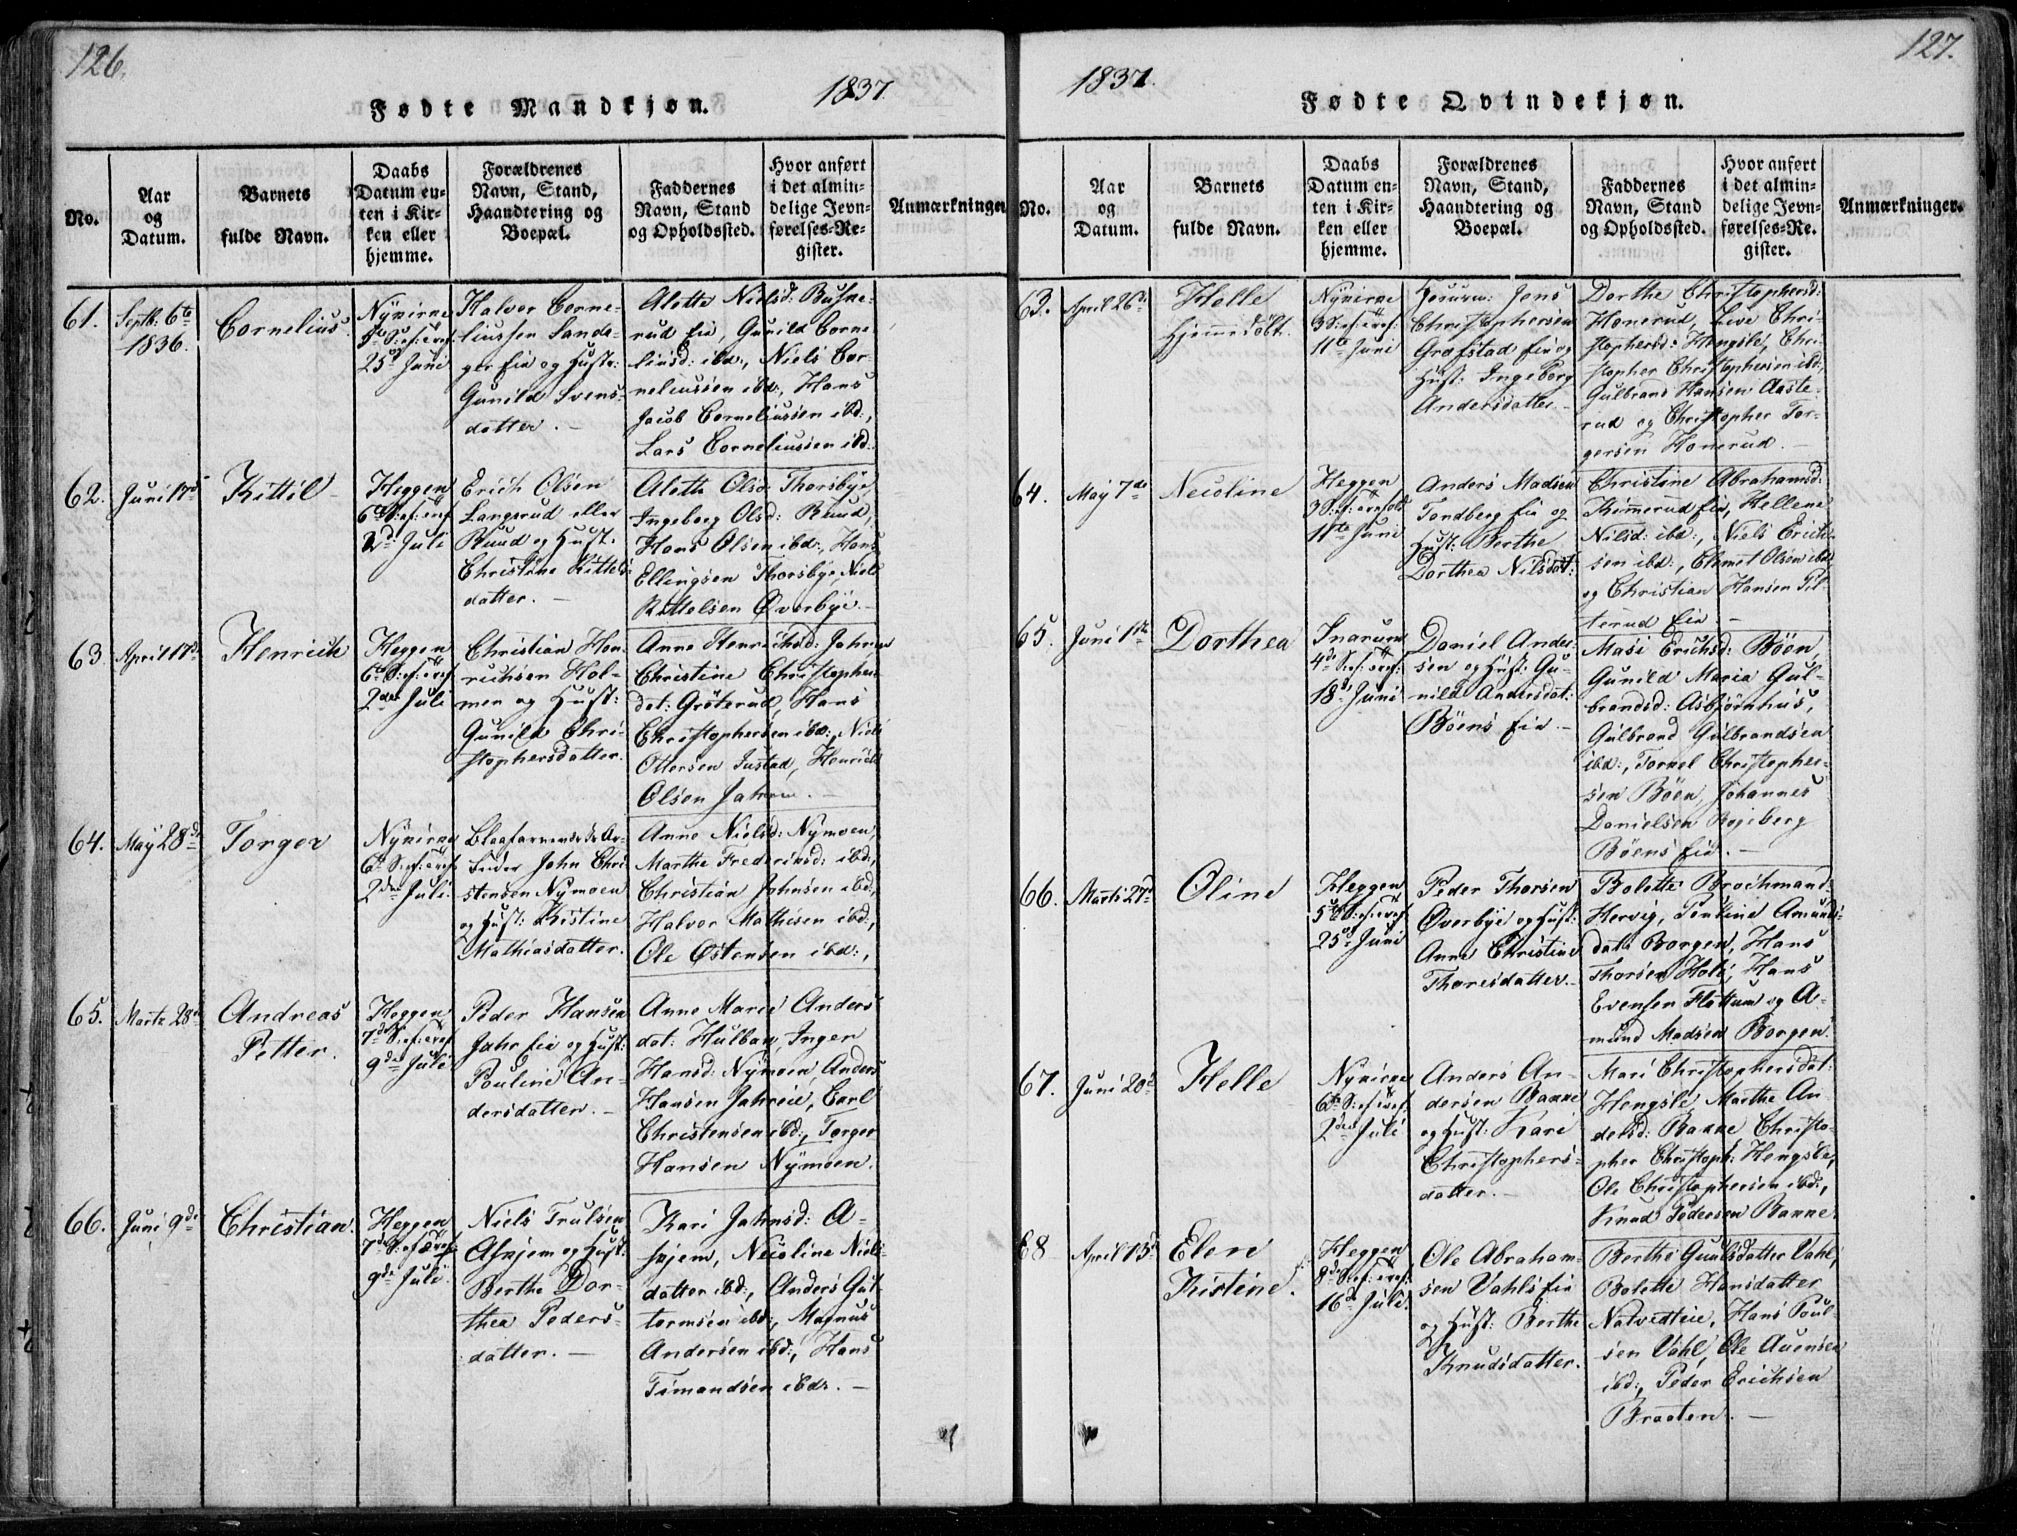 126.
1837
Fødte Mandkjøn.
No.
Aar
og
Datum.
Barnets
fulde Navn.
Daabs
Datum en-
ten i Kir-
ken eller
hjemme.
Forældrenes
Navn, Stand,
Haandtering og
Boepæl.
Faddernes
Navn, Stand
og Opholdssted.
Hvor anført
i det almin-
delige Jevn-
førelses-Re-
gister.
Anmærkninger
61.
Septb: 6te
1836.
Cornelius.
Nykirke
25de Juni
Halvor Corne-
liussen Sande-
ger Eie og Hust:
Gunild Svens-
datter. –
Alette Nielsd: Buske-
rud Eie, Gunild Corne-
liusd: ibd:, Niels Cor-
neliussen ibd:, Hans
Jacob Corneliussen ibd:,
Lars Corneliussen ibd:
62.
Juni 17de
Kittil
Heggen
6te S: ef: tref
2den Juli
Erich Olsen
Langerud eller
Ruud og Hust:
Christine Kittels-
datter. –
Aleth Olsd: Thorsbye
Ingeborg Olsd: Ruud,
Hans Olsen ibd:, Hans
Ellingsen Thorsbye, Niels
Kittelsen Øverbye. –
63
April 17de
Henrich
Heggen
6te S: ef: tref
2den Juli
Christian Hen-
richsen Hol-
men og Hust:
Gunild Chri-
stophersdatter.
Anne Henrichsd: Jahren
Christine Christophers-
dat: Gröterud, Hans
Christophersen ibd:, Niels
Ottersen Justad, Henrich
Olsen Jahren. –
64.
May 28de
Torger
Nykirke
6te S: ef: tref
2den Juli.
Blaafarveværks Ar-
beider John Chri-
stensen Nymoen
og Hust: Kistine
Mathiasdatter.
Anne Nielsd: Nymoen,
Marthe Frederiksd: ibd:,
Christian Johnsen ibd:,
Halvor Mathisen ibd:,
Ole Østensen ibd:,
65.
Marts 28de
Andreas
Petter.
Heggen
7de S: ef: tref
9de Juli
Peder Hansen
Jahr Eie og Hust:
Pouline An-
dersdatter. –
Anne Marie Anders
dat: Hulbak, Inger
Hansd: Nymoen, Anders
Hansen Jahreie, Carl
Christensen ibd:, Torger
Hansen Nymoen.
66.
Juni 9de
Christian.
Heggen
7de S: ef: tref
9de Juli
Niels Trulsen
Askjem og Hust:
Berthe Dor-
thea Peders-
datter. –
Kari Jahnsd: A-
skjem, Nicoline Niels-
datter ibd:, Anders Gut-
tormsen ibd:, Magnus
Andersen ibd:, Hans
Simondsen ibd:. –
127.
1837.
Fødte Qvindekjøn.
No.
Aar
og
Datum.
Barnets
fulde Navn.
Daabs
Datum en-
ten i Kir-
ken eller
hjemme.
Forældrenes
Navn, Stand,
Haandtering og
Boepæl.
Faddernes
Navn, Stand
og Opholdssted.
Hvor anført
i det almin-
delige Jevn-
førelses-Re-
gister.
Anmærkninger.
63.
April 26de
Helle
Hjemmedöbt.
Nykirke
3 S: ef: tref:
11te Juni
Jens
Christophersen
Grafstad Eie og
Hust: Ingeborg
Andersdatter –
Dorthe Christophersd:
Honerud, Live Chri-
stophersd: Hengsle, Chri-
stopher Christophersen ibd:,
Gulbrand Hansen Aaste-
rud og Christopher Tor-
gersen Honerud. –
64.
May 7de
Nicoline
Heggen
11te Juni
Anders Madsen
Tandberg Eie og
Hust: Berthe
Dorthea Nilsdat:
Christine Abrahamsd:
Kimerud Eie, Hellene
Nilsd: ibd:, Niels Erich-
sen ibd:, Clemet Olsen ibd:
og Christian Hansen Til-
terud Eie –
65.
Juni 1ste
Dorthea
Snarum
4de S: ef: tref:
18de Juni
Daniel Ander-
sen og Hust: Gu-
nild Andersdat:
Böens Eie –
Mari Erichsd: Böen,
Gunild Maria Gul-
brandsd: Asbjörnhus,
Gulbrand Gulbrandsen
ibd:, Tornel Christopher-
sen Böen, Johannes
Danielsen
Böens Eie. –
66.
Marts 27de
Oline
Heggen
5te S: ef: tref
25de Juni
Peder Thorsen
Øverbye og Hust:
Anne Christine
Thoresdatter –
Bolette Brochmand
Hervig, Amunds-
dat: Borgen, Hans
Thorsen Hole, Hans
Evensen Flattum og A-
mund Madsen Borgen.
67.
Juni 20de
Helle
Nykirke
6te S: ef: tref
2den Juli
Anders An-
dersen Bakke
og Hust: Kari
Christophers-
datter. –
Mari Christophersdat:
Hengsle, Marthe An-
dersd: Bakke, Christo-
pher Christoph: Hengsle,
Ole Christophersen ibd:,
Knud Pedersen Bakke.
68
April 13de
Elen
Kristine.
Heggen
8de S: ef: tref:
16de Juli.
Ole Abraham-
sen Vahls Eie
og Hust: Berthe
Knudsdatter.
Berthe Gunlsdatter Vahl,
Bolette Hansdatter
Natvedteie, Hans Poul-
sen Vahl, Ole Auensen
ibd:, Peder Erichsen
Braaten. –